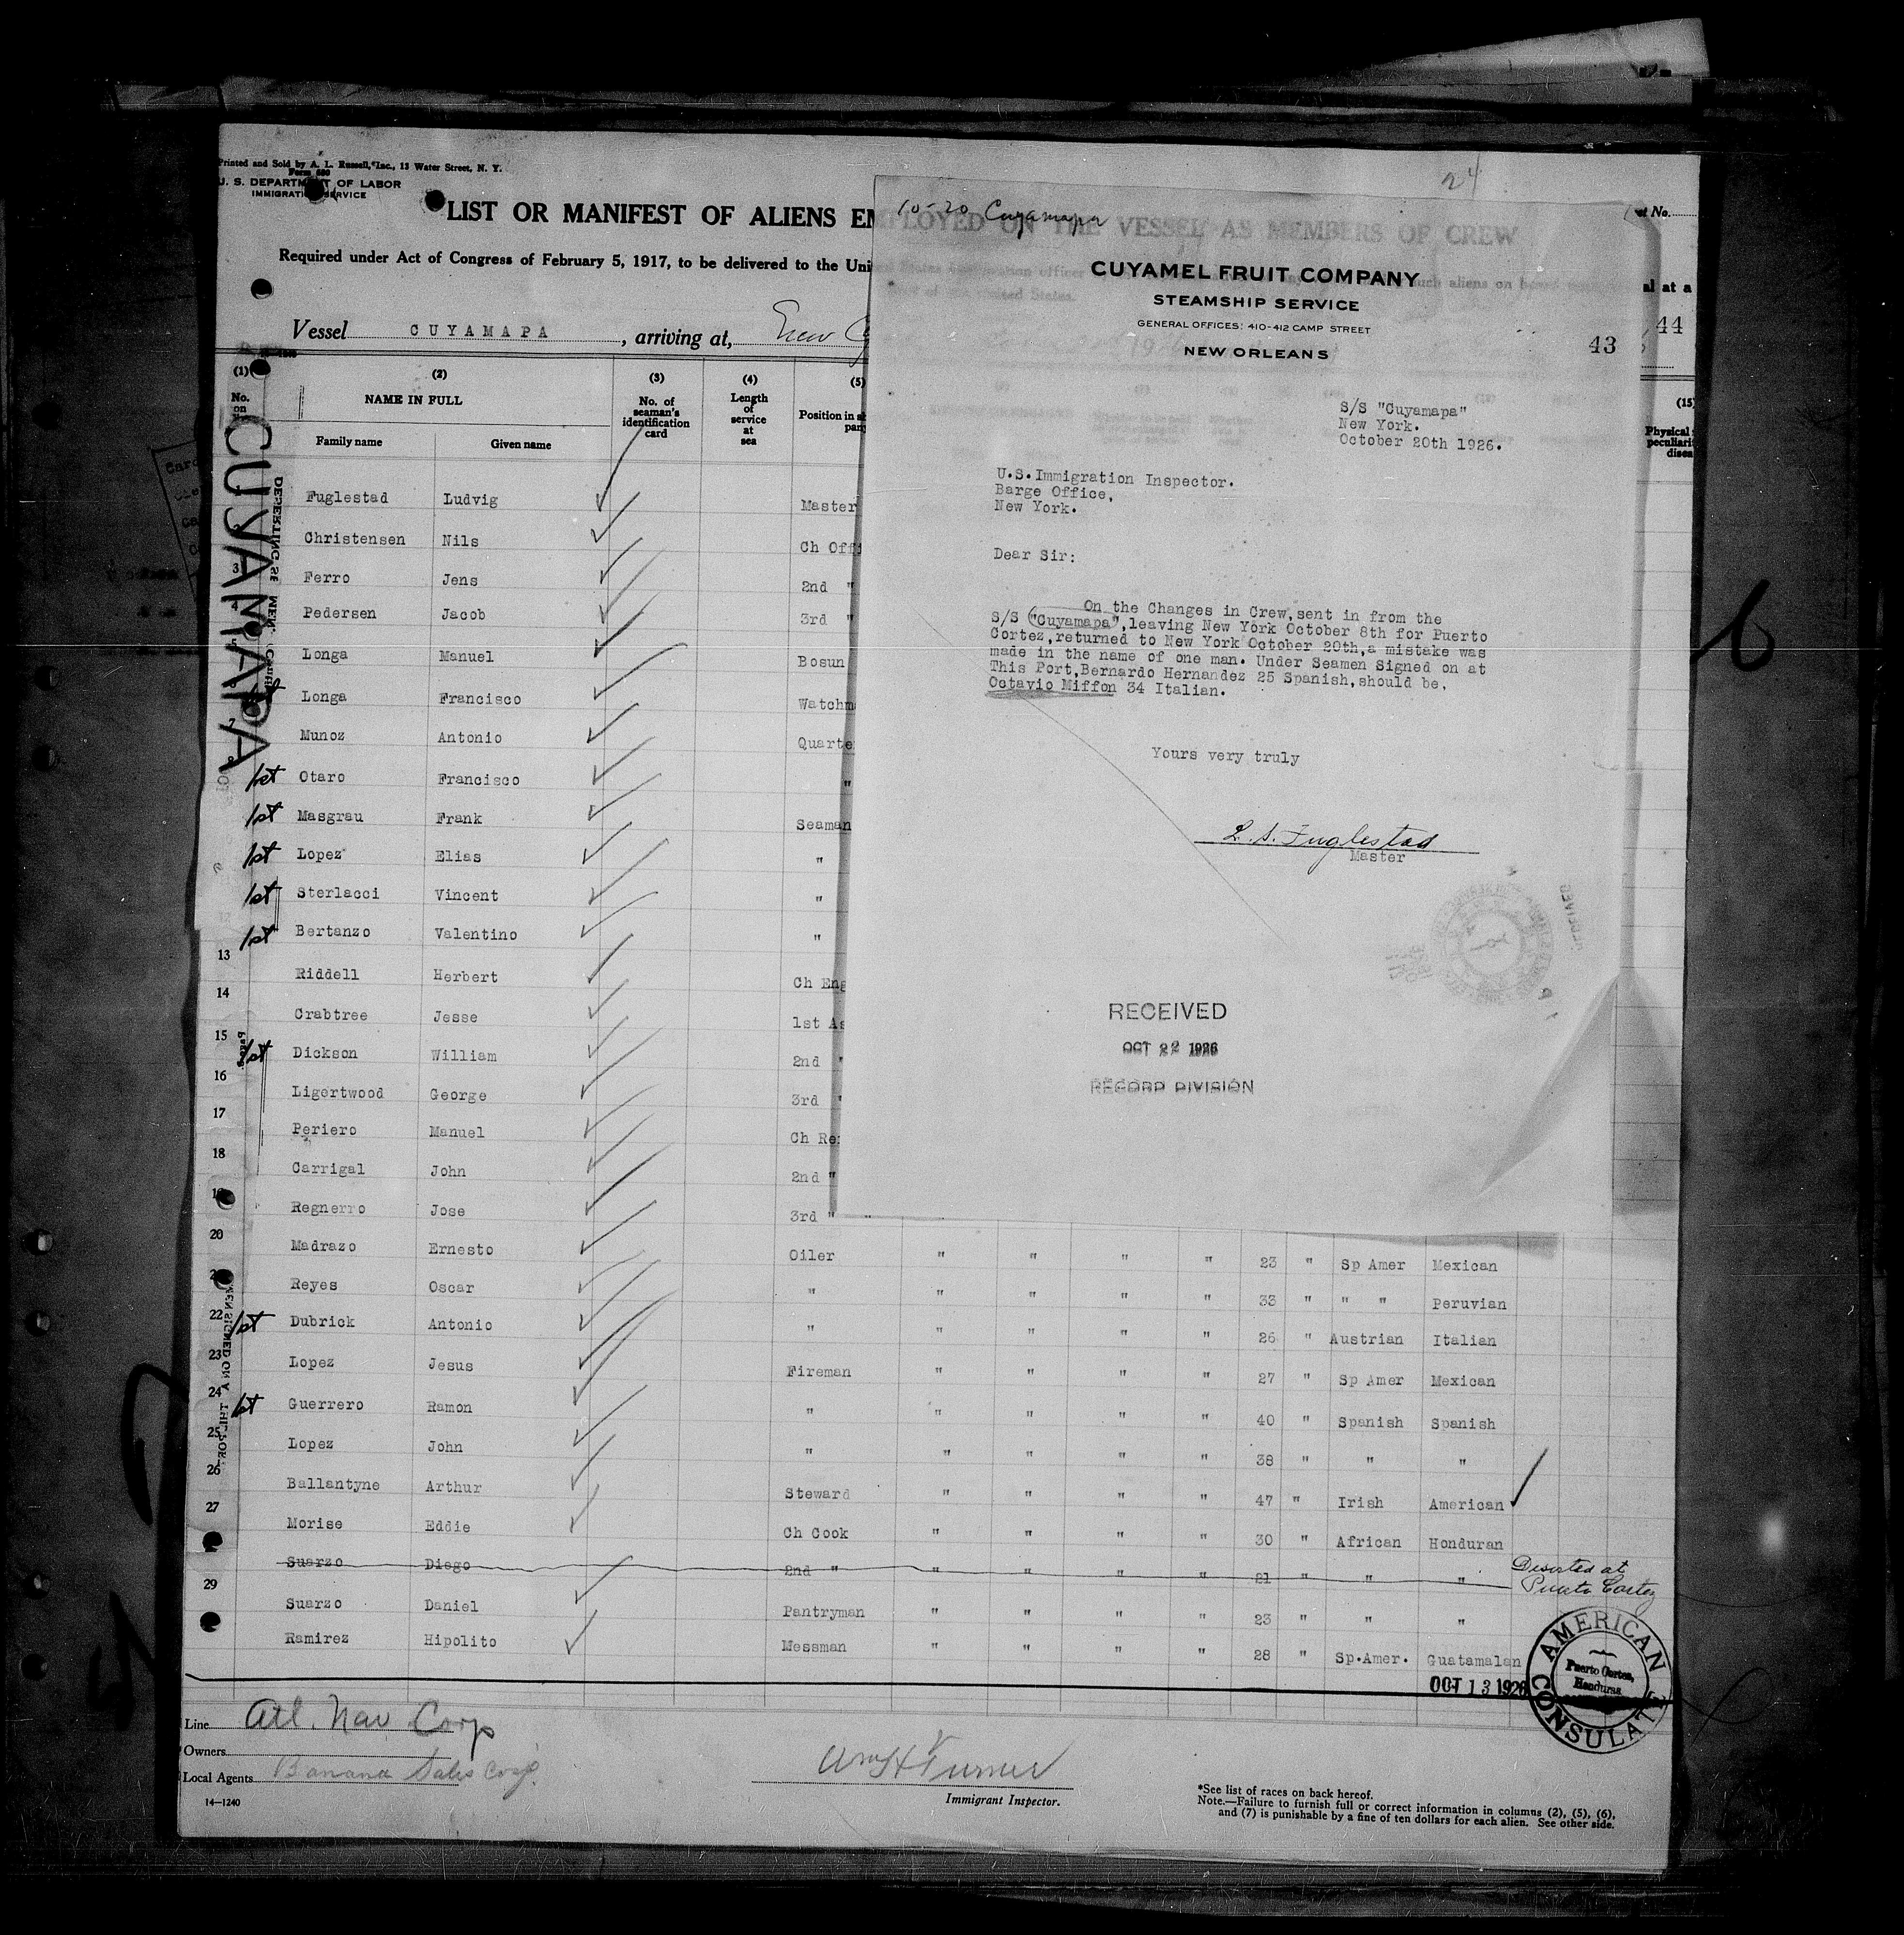 Printed and Sold by A. L. Russell, Inc., 13 Water Street, N. Y.
Form 680
U. S. DEPARTMENT OF LABOR
IMMIGRATION SERVICE
LIST OR MANIFEST OF ALIENS EMPLOYED ON THE VESSEL AS MEMBERS OF CREW
Required under Act of Congress of February 5, 1917, to be delivered to the Uni
Vessel CUYAMAPA, arriving at, New
24
10-20 Cuyamapa
CUYAMEL FRUIT COMPANY
STEAMSHIP SERVICE
GENERAL OFFICES: 410-412 CAMP STREET
NEW ORLEANS
43
44
S/S "Cuyamapa"
New York.
October 20th 1926.
U.S.Immigration Inspector.
Barge Office,
New York.
Dear Sir:
On the Changes in Crew,sent in from the
S/S "Cuyamapa",leaving New York October 8th for Puerto
Cortez,returned to New York October 20th,a mistake was
made in the name of one man. Under Seamen Signed on at
This Port,Bernardo Hernandez 25 Spanish,should be,
Octavio Miffon 34 Italian.
Yours very truly
L. S. Fuglestad
Master
RECEIVED
OCT 22 1926
RECORD DIVISION
(1) (2) (3) (4) (5) (15)
No. on NAME IN FULL No. of seaman's identification card Length of service at sea Position in
Family name Given name
CUYAMAPA
Fuglestad Ludvig Master
Christensen Nils Ch Offi
3 Ferro Jens 2nd "
4 Pedersen Jacob 3rd "
5 Longa Manuel Bosun
Longa Francisco Watchm
7 Munoz Antonio Quarte
1st Otaro Francisco "
1st Masgrau Frank Seaman
1st Lopez Elias "
1st Sterlacci Vincent "
1st Bertanzo Valentino "
13 Riddell Herbert Ch Eng
14 Crabtree Jesse 1st As
15 1st Dickson William 2nd "
16 Ligertwood George 3rd "
17 Periero Manuel Ch Re
18 Carrigal John 2nd "
19 Regnerro Jose 3rd " "
20 Madrazo Ernesto Oiler " " " " 23 " Sp Amer Mexican
Reyes Oscar " " " " " 33 " " " Peruvian
22 1st Dubrick Antonio " " " " " 26 " Austrian Italian
23 Lopez Jesus Fireman " " " " 27 " Sp Amer Mexican
24 1st Guerrero Ramon " " " " " 40 " Spanish Spanish
25 Lopez John " " " " " 38 " " "
26 Ballantyne Arthur Steward " " " " 47 " Irish American
27 Morise Eddie Ch Cook " " " " 30 " African Honduran
Suarzo Diego 2nd " " " " " 21 " " " Deserted at Puerto Cortez
29 Suarzo Daniel Pantryman " " " " 23 " " "
Ramirez Hipolito Messman " " " " 28 " Sp.Amer. Guatamalan
OCT 13 1926
AMERICAN CONSULATE
Puerto Cortes, Honduras
Line Atl. Nav Corp
Owners
Local Agents Banana Sales Corp.
14—1240
Wm H Turner
Immigrant Inspector.
*See list of races on back hereof.
Note.—Failure to furnish full or correct information in columns (2), (5), (6),
and (7) is punishable by a fine of ten dollars for each alien. See other side.